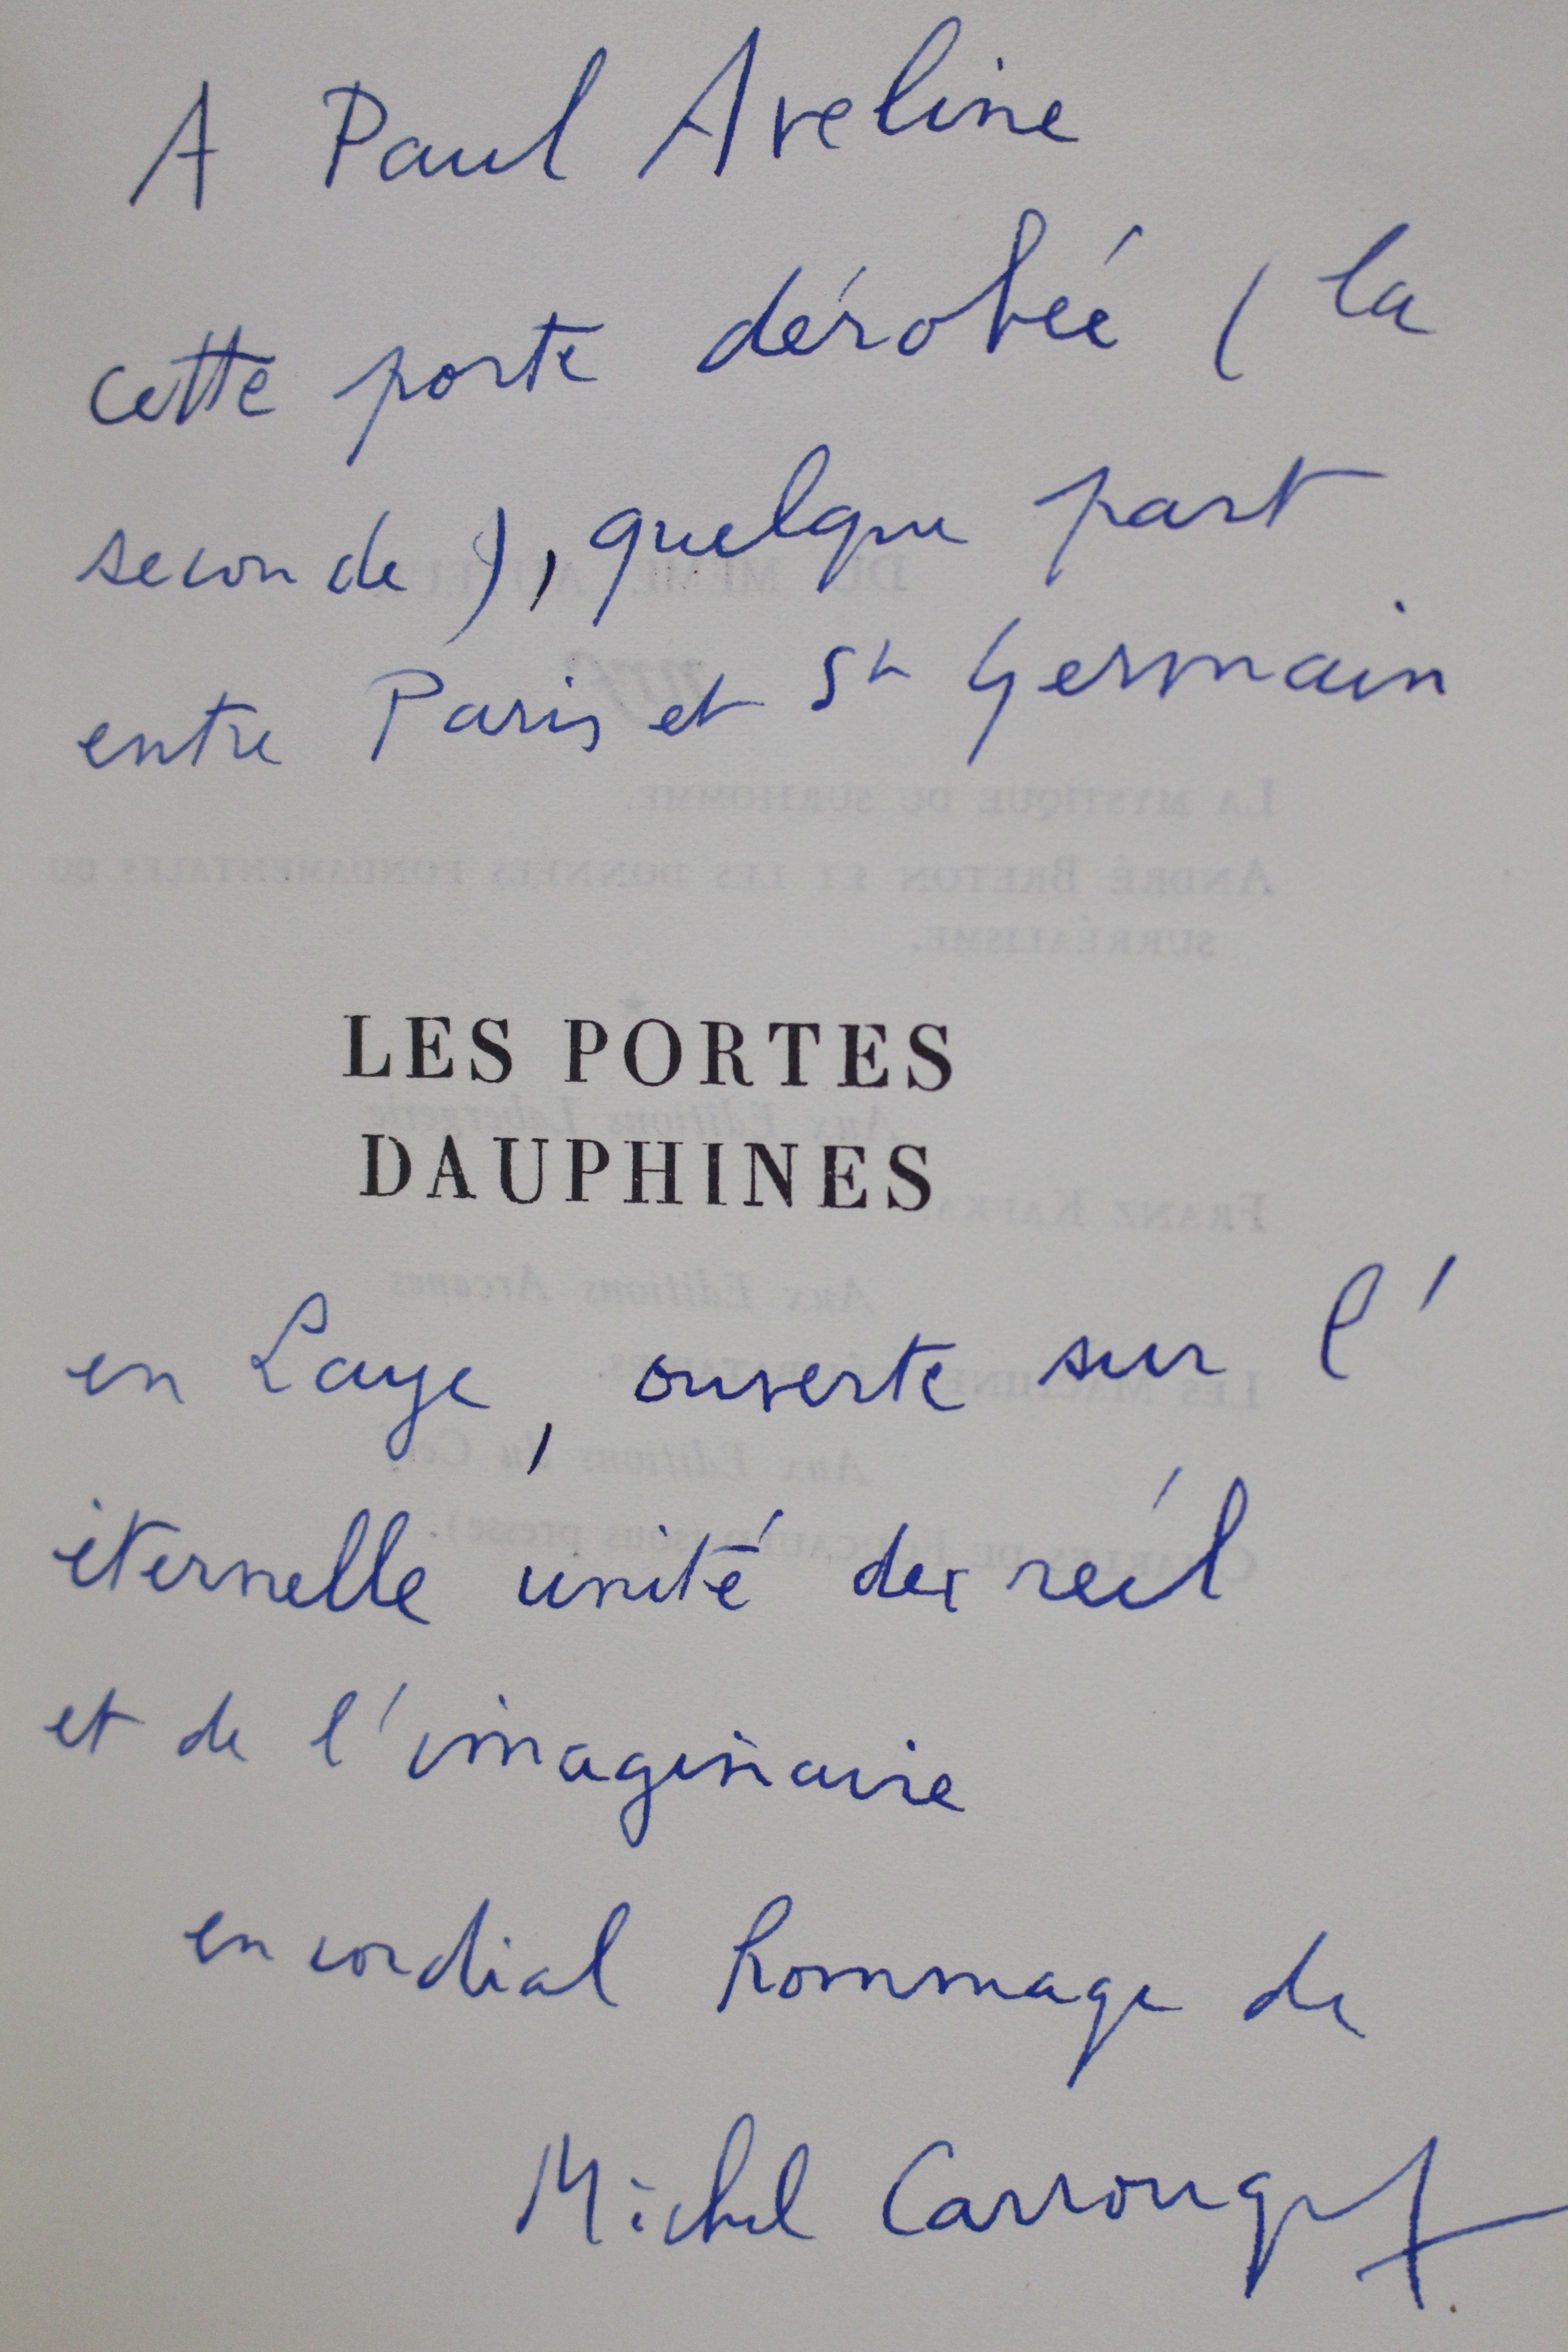 A Paul Aveline
cette porte dérobée (la
seconde), quelque part
entre Paris et St Germain
LES PORTES
DAUPHINES
en Laye, ouverte sur l'
éternelle unité du réel
et de l'imaginaire
en cordial hommage de
Michel Carrouges